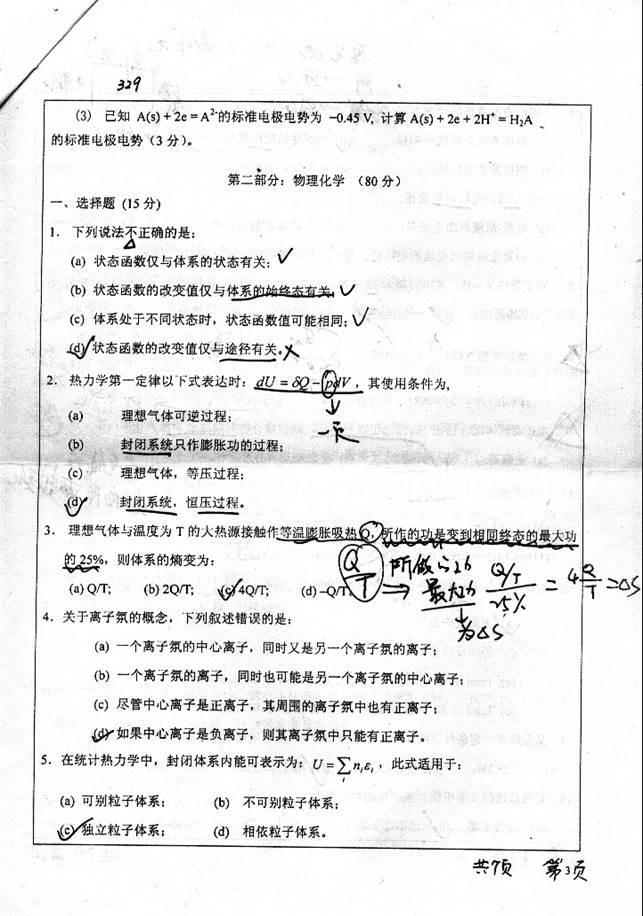 329
(3) 已知 A(s) + 2e = A²⁻的标准电极电势为 −0.45 V, 计算 A(s) + 2e + 2H⁺ = H₂A
的标准电极电势（3 分）。
第二部分：物理化学 （80 分）
一、选择题 (15 分)
1. 下列说法不正确的是：
(a) 状态函数仅与体系的状态有关；√
(b) 状态函数的改变值仅与体系的始终态有关；√
(c) 体系处于不同状态时，状态函数值可能相同；√
(d) 状态函数的改变值仅与途径有关。×
2. 热力学第一定律以下式表达时：dU = δQ − pdV，其使用条件为,
(a) 理想气体可逆过程；
(b) 封闭系统只作膨胀功的过程；
(c) 理想气体，等压过程；
(d) 封闭系统，恒压过程。
3. 理想气体与温度为 T 的大热源接触作等温膨胀吸热 Q，所作的功是变到相同终态的最大功
的 25%，则体系的熵变为：
(a) Q/T; (b) 2Q/T; (c) 4Q/T; (d) −Q/T
Q/T ⇒ 最大功 Q/T / 25% = 4 Q/T = ΔS
为ΔS
4. 关于离子氛的概念，下列叙述错误的是：
(a) 一个离子氛的中心离子，同时又是另一个离子氛的离子；
(b) 一个离子氛的离子，同时也可能是另一个离子氛的中心离子；
(c) 尽管中心离子是正离子，其周围的离子氛中也有正离子；
(d) 如果中心离子是负离子，则其离子氛中只能有正离子。
5. 在统计热力学中，封闭体系内能可表示为：U = ∑ᵢ nᵢεᵢ，此式适用于：
(a) 可别粒子体系； (b) 不可别粒子体系；
(c) 独立粒子体系； (d) 相依粒子体系。
共7页 第3页